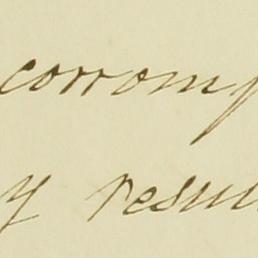 corromp
y resul